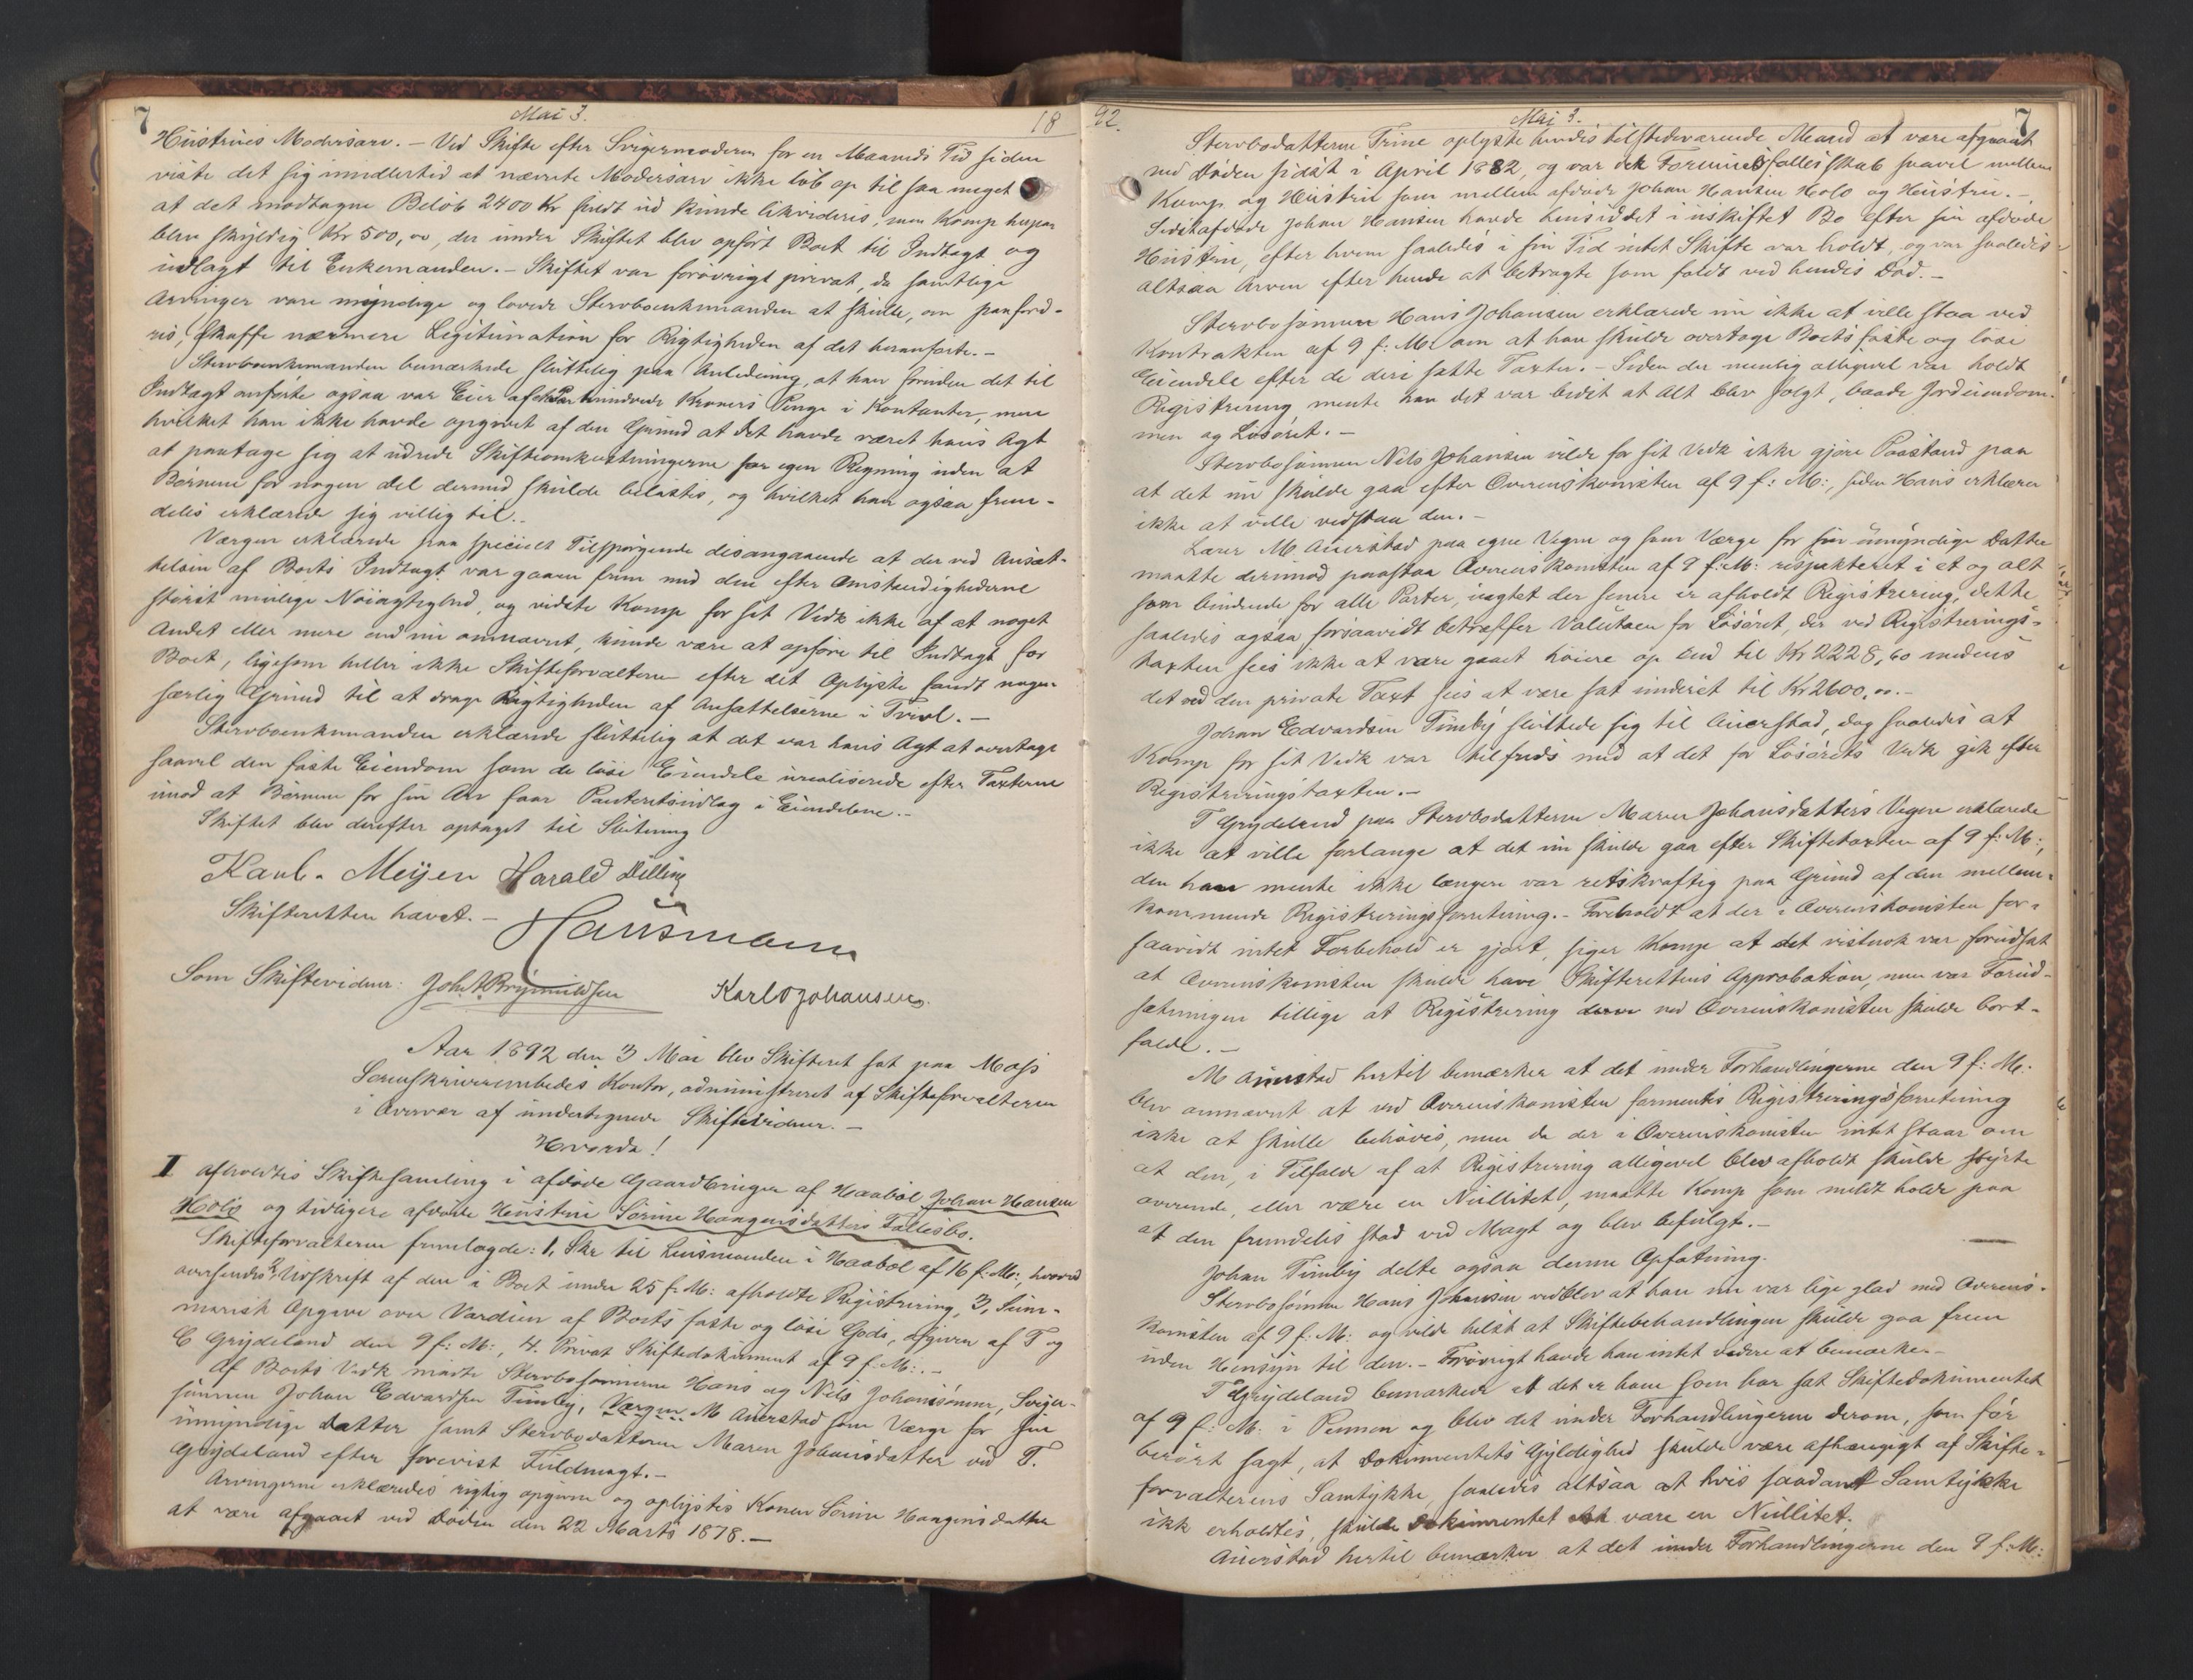 7
Mai 3.
18
Hustrues Modersarv. – Ved Skifte efter Svigermoderen for en Maaneds Tid siden
viste det sig imidlertid at nævnte Modersarv ikke løb op til saa meget
at det modtagne Beløb 2400 Kr fuldt ud kunde likvideres, men Komp
blev skyldig Kr 500,00, der under Skiftet blev opført Boet til Indtægt og
udlagt til Enkemanden. – Skiftet var forøvrigt privat, da samtlige
Arvinger vare myndige og lovede Stervboenkemanden at skulle, om paaford-
res, skaffe nærmere Legitimation for Rigtigheden af det heranførte. –
Stervboenkemanden bemærkede sluttelig paa Anledning, at han foruden det til
Indtægt anførte ogsaa var Eier af et Par hundrede Kroners Penge i Kontanter, men
hvilket han ikke havde opgivet af den Grund at det havde været hans Agt
at paatage sig at udrede Skifteomkostningerne for egen Regning uden at
Børnene for nogen Del dermed skulde belastes, og hvilket han ogsaa frem-
deles erklærede sig villig til. –
Værgen erklærede paa specielt Tilspørgende desangaaende at der ved Ansæt-
telsen af Boets Indtægt var gaaen frem med den efter Omstændighederne
størst mulige Nøiagtighed, og vidste Komp for sit Vedk ikke af at noget
andet eller mere end nu omnævnt, kunde være at opføre til Indtægt for
Boet, ligesom heller ikke Skifteforvalteren efter det Oplyste fandt nogen
særlig Grund til at drage Rigtigheden af Ansættelserne i Tvivl. –
Stervboenkemanden erklærede sluttelig at det var hans Agt at overtage
saavel den faste Eiendom som de løse Eiendele urealiserede efter Taxterne
imod at Børnene for sin Arv faar Panteretsudlæg i Eiendelene. –
Skiftet blev derefter optaget til Slutning
Karl. Meyer Harald Dilling
Skifteretten hævet. –
Hansmann
Som Skiftevidner: Joh. A. Brynildsen Karl Johansen.
Aar 1892 den 3 Mai blev Skifteret sat paa Moss
Sorenskriverembedes Kontor, administreret af Skifteforvalteren
i Overvær af undertegnede Skiftevidner. –
Hvorda!
I afholdtes Skiftesamling i afdøde Gaardbruger af Haabøl Johan Hansen
Hølis og tidligere afdøde Hustru Sørine Haagensdatters Fællesbo.
Skifteforvalteren fremlagde: 1, Skr til Lensmanden i Haabøl af 16 f: M:, hvorved
oversendes 2, Udskrift af den i Boet under 25 f: M: afholdte Registrering, 3, Sum-
marisk Opgave over Værdien af Boets faste og løse Gods, afgiven af T og
C Grydeland den 9 f: M:, 4. Privat Skiftedokument af 9 f: M:. –
Af Boets Vedk mødte Stervbosønnerne Hans og Nils Johansønner, Sviger-
sønnen Johan Edvardsen Timby, Værgen M Auerstad som Værge for sin
umyndige Datter samt Stervbodatteren Maren Johansdatter ved T.
Grydeland efter forevist Fuldmagt. –
Arvingerne erklæredes rigtig opgivne og oplystes Konen Sørine Haagensdatter
at være afgaaet ved Døden den 22 Marts 1878. –
92.
Mai 3.
7
Stervbodatteren Trine oplyste hendes tilstedeværende Mand at være afgaaet
ved Døden sidst i April 1882, og var der Formuesfællesskab saavel mellem
Komp og Hustru som mellem afdøde Johan Hansen Holo og Hustru. –
Sidstafdøde Johan Hansen havde hensiddet i uskiftet Bo efter sin afdøde
Hustru, efter hvem saaledes i sin Tid intet Skifte var holdt, og var saaledes
altsaa Arven efter hende at betragte som faldt ved hendes Død. –
Stervbosønnen Hans Johansen erklærede nu ikke at ville staa ved
Kontrakten af 9 f: M: om at han skulde overtage Boets faste og løse
Eiendele efter de deri satte Taxter. – Siden der nemlig alligevel var holdt
Registrering mente han det var bedst at Alt blev solgt, baade Jordeiendom-
men og Løsøret. –
Stervbosønnen Nils Johansen vilde for sit Vedk ikke gjøre Paastand paa
at det nu skulde gaa efter Overenskomsten af 9 f: M:, siden Hans erklærer
ikke at ville vedstaa den. –
Lærer M Auerstad paa egne Vegne og som Værge for sin umyndige Datter
maatte derimod paastaa Overenskomsten af 9 f: M: respekteret i et og alt
som bindende for alle Parter, uagtet der senere er afholdt Registrering, dette
saaledes ogsaa forsaavidt betræffer Valutaen for Løsøret, der ved Registrerings-
taxten sees ikke at være gaaet høiere op end til Kr 2228,60 medens
det ved den private Taxt sees at være sat underet til Kr 2600,00. –
Johan Edvardsen Timby sluttede sig til Auerstad, dog saaledes at
Komp for sit Vedk var tilfreds med at det for Løsørets Vedk gik efter
Registreringstaxten. –
T Grydeland paa Stervbodatteren Maren Johansdatters Vegne erklærede
ikke at ville forlange at det nu skulde gaa efter Skiftetaxten af 9 f: M:,
den han mente ikke længere var retskraftig paa Grund af den mellem-
kommende Registreringsforretning. – Foreholdt at der i Overenskomsten for-
saavidt intet Forbehold er gjort, siger Komp at det vistnok var forudsat
at Overenskomsten skulde have Skifterettens Approbation, men var Forud-
sætningen tillige at Registrering ved Overenskomsten skulde bort-
falde. –
M Auerstad hertil bemærker at det under Forhandlingerne den 9 f: M:
blev omnævnt at ved Overenskomsten formentes Registreringsforretning
ikke at skulle behøves, men da der i Overenskomsten intet staar om
at den, i Tilfælde af at Registrering alligevel blev afholdt skulde styrte
overende, eller være en Nullitet, maatte Komp som meldt holde paa
at den fremdeles stod ved Magt og blev befulgt. –
Johan Timby delte ogsaa denne Opfatning.
Stervbosønnen Hans Johansen vedblev at han nu var lige glad med Overens-
komsten af 9 f: M: og vilde helst at Skiftebehandlingen skulde gaa frem
uden Hensyn til den. – Forøvrigt havde han intet videre at bemærke. –
T Grydeland bemærkede at det er ham som har sat Skiftedokumentet
af 9 f: M: i Pennen og blev det under Forhandlingerne derom, som før
berørt sagt, at Dokumentets Gyldighed skulde være afhængigt af Skifte-
forvalterens Samtykke, saaledes altsaa at hvis saadant Samtykke
ikk erholdtes, skulde Dokumentet være en Nullitet.
Auerstad hertil bemærker at det under Forhandlingerne den 9 f: M: